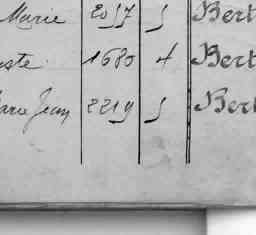 Marie 2057 5 Bert
ste 1680 4 Bert
arie Jean 2219 5 Bert